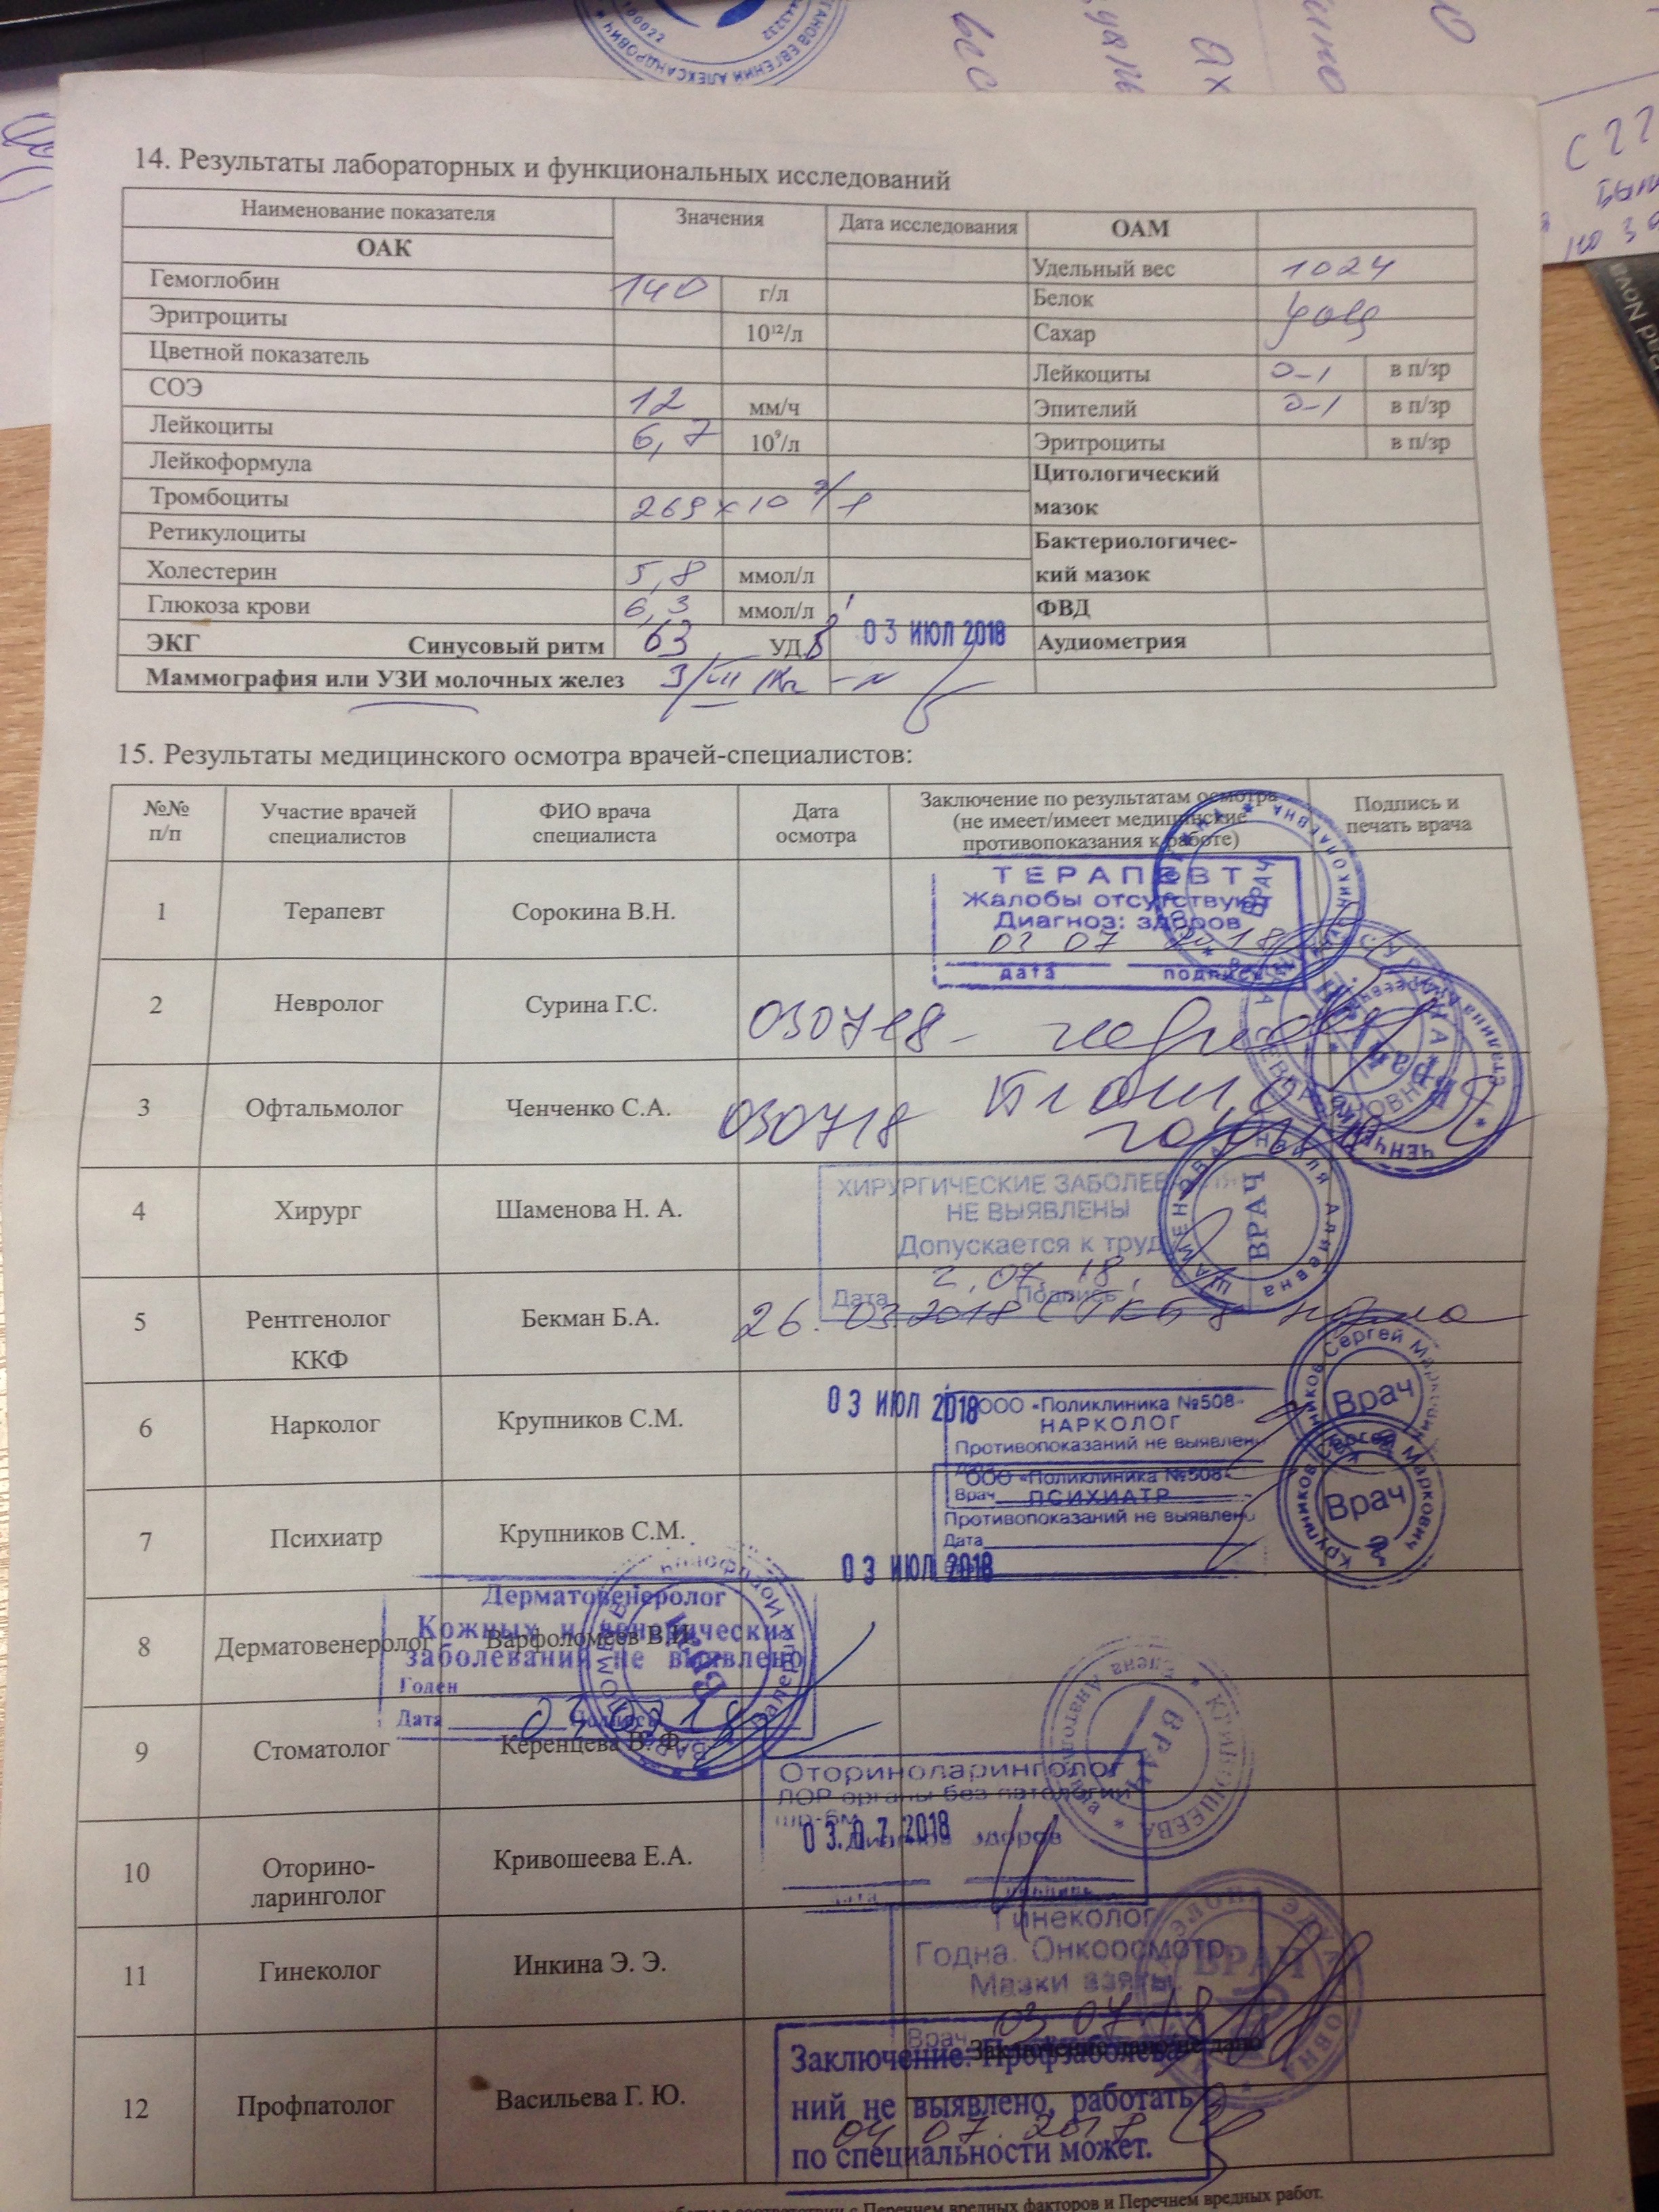 14. Результаты лабораторных и функциональных исследований
Наименование показателя Значения Дата исследования ОАМ
ОАК
Удельный вес 1024
Гемоглобин 140 г/л
Белок
Эритроциты 10¹²/л
Сахар
Цветной показатель
Лейкоциты 0-1 в п/зр
СОЭ 12 мм/ч
Эпителий 0-1 в п/зр
Лейкоциты 6,7 10⁹/л
Эритроциты в п/зр
Лейкоформула
Цитологический
мазок
Тромбоциты 269 x 10
Ретикулоциты
Бактериологичес-
кий мазок
Холестерин 5,8 ммол/л
Глюкоза крови 6,3 ммол/л
ФВД
ЭКГ Синусовый ритм 63 УД. 03 ИЮЛ 2018
Аудиометрия
Маммография или УЗИ молочных желез
15. Результаты медицинского осмотра врачей-специалистов:
№№
п/п
Участие врачей
специалистов
ФИО врача
специалиста
Дата
осмотра
Заключение по результатам осмотра
(не имеет/имеет медицинские
противопоказания к работе)
Подпись и
печать врача
1 Терапевт Сорокина В.Н.
ТЕРАПЕВТ
Жалобы отсутствуют
Диагноз: здоров
03 07 2018
дата подпись
2 Невролог Сурина Г.С. 030718-
3 Офтальмолог Ченченко С.А. 030718
ЧЕНЧЕНКО
Врач
4 Хирург Шаменова Н. А.
ХИРУРГИЧЕСКИЕ ЗАБОЛЕВАНИЯ
НЕ ВЫЯВЛЕНЫ
Допускается к труду
2.07.18
Дата Подпись
ВРАЧ
5 Рентгенолог
ККФ
Бекман Б.А. 26.03.2018 норма
6 Нарколог Крупников С.М. 03 ИЮЛ 2018
ООО «Поликлиника №508»
НАРКОЛОГ
Противопоказаний не выявлено
Врач
Крупников Сергей Маркович
Врач
7 Психиатр Крупников С.М. 03 ИЮЛ 2018
ООО «Поликлиника №508»
ПСИХИАТР
Противопоказаний не выявлено
Дата
Крупников Сергей Маркович
Врач
8 Дерматовенеролог Варфоломеев В.И.
Дерматовенеролог
Кожных и венерических
заболеваний не выявлено
Годен
Дата Подпись
9 Стоматолог Керенцева В. Ф.
10 Оторино-
ларинголог
Кривошеева Е.А.
Оториноларинголог
ЛОР органы без патологии
03.07.2018
здоров
дата
КРИВОШЕЕВА Елена Анатольевна
ВРАЧ
11 Гинеколог Инкина Э. Э.
Гинеколог
Годна. Онкоосмотр.
Мазки взяты.
03 07 18
Врач
ВРАЧ
12 Профпатолог Васильева Г. Ю.
Заключение: Профзаболева-
ний не выявлено, работать
04 07. 2018
по специальности может.
в соответствии с Перечнем вредных факторов и Перечнем вредных работ.